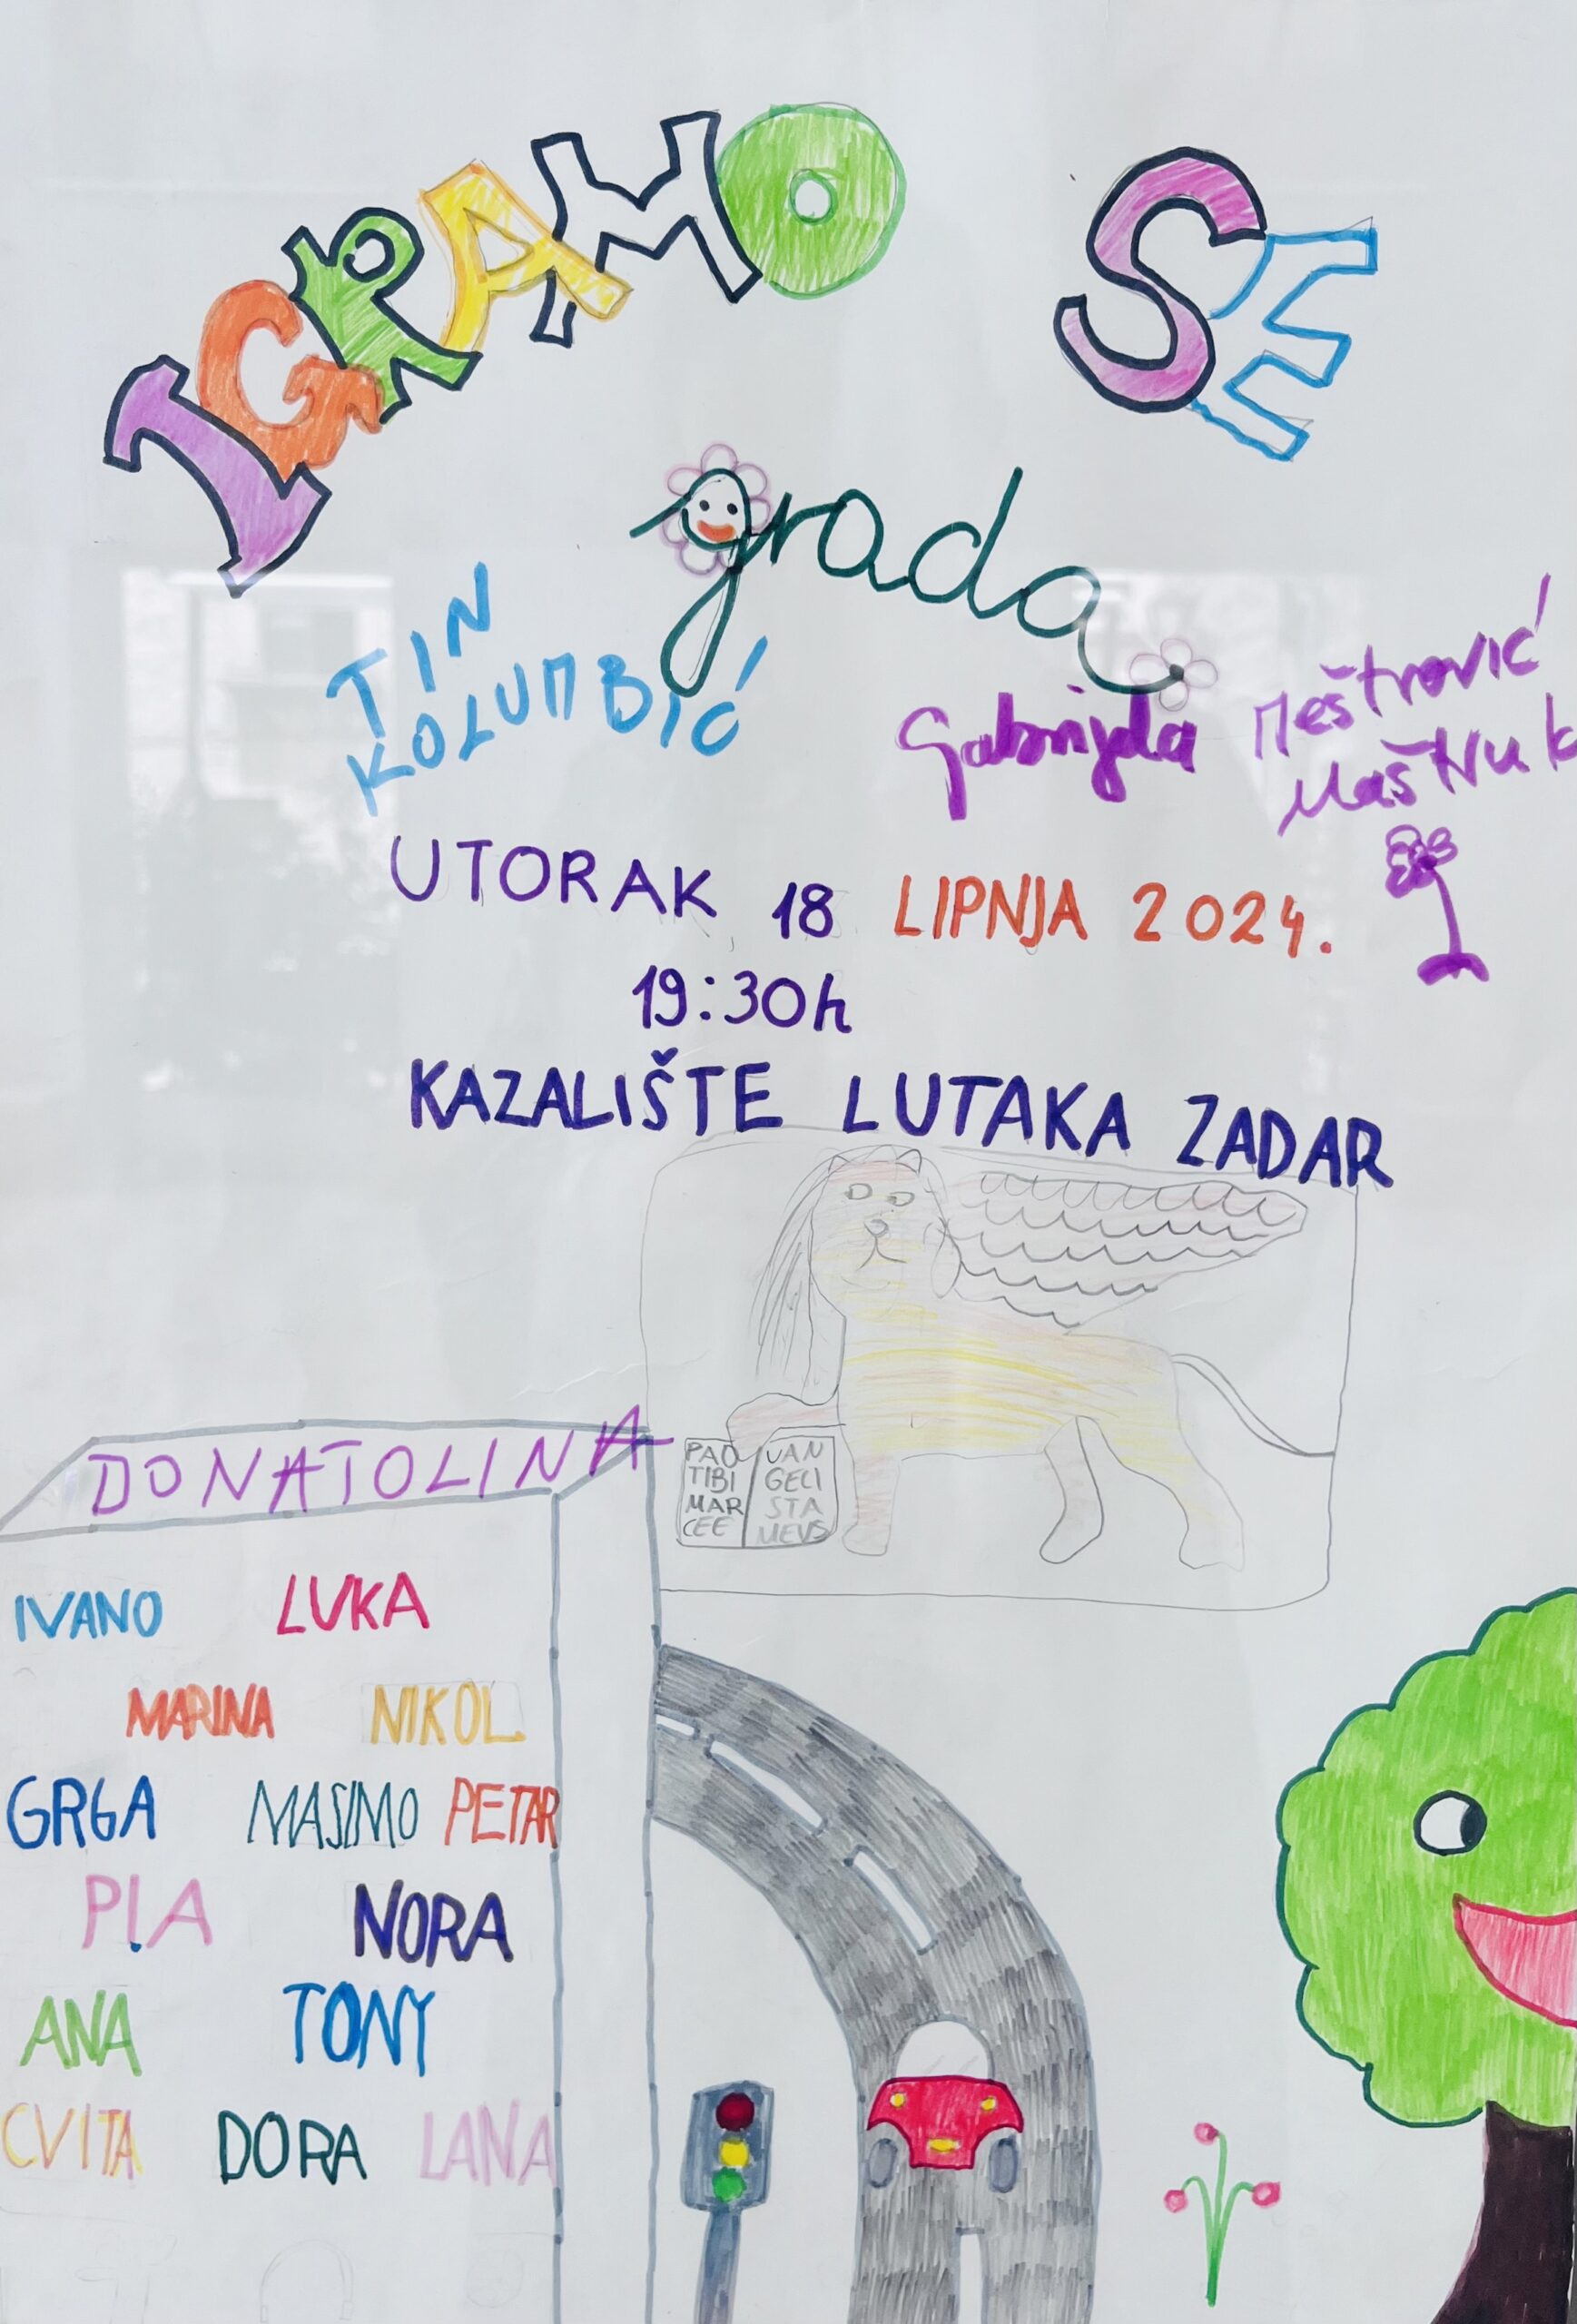 IGRAMO SE
grada
TIN
KOLUMBIĆ
Gabrijela Meštrović
Maštruk
UTORAK 18 LIPNJA 2024.
19:30h
KAZALIŠTE LUTAKA ZADAR
PAO VAN
TIBI GELI
MAR STA
CEE MEVS
DONATOLINA
IVANO LUKA
MARINA NIKOL
GRGA MASIMO PETAR
PIA NORA
ANA TONY
CVITA DORA LANA